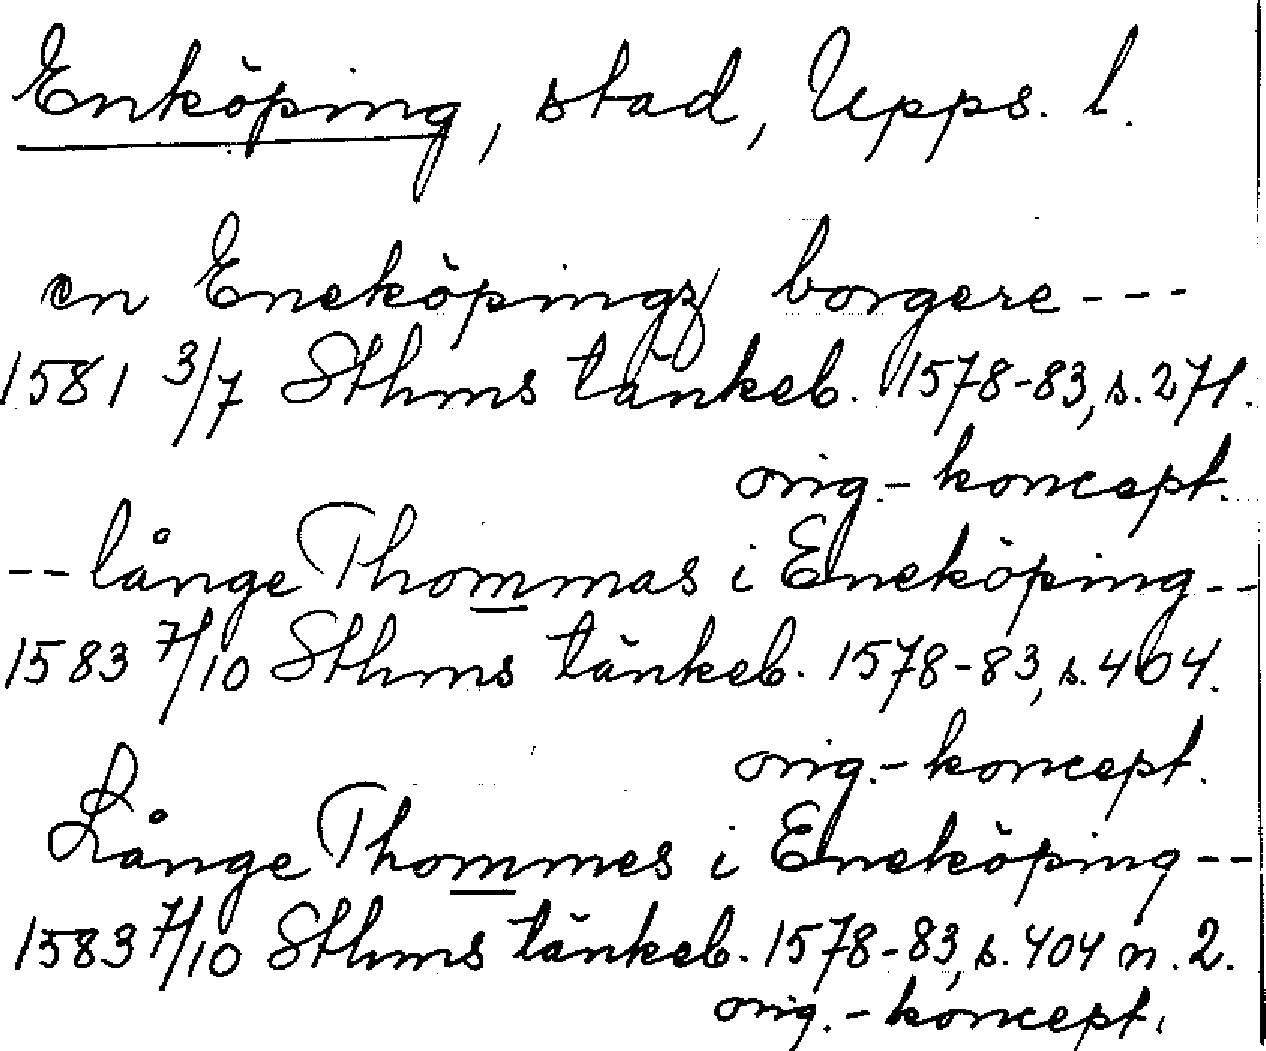 Enköping, stad, Upps. l.
en Eneköpingz borgere ---
1581 3/7 Sthms tänkeb. 1578-83, s. 271.
orig.-koncept.
-- långe Thommas i Eneköping --
1583 7/10 Sthms tänkeb. 1578-83, s. 404.
orig.-koncept.
Långe Thommes i Eneköping --
1583 7/10 Sthms tänkeb. 1578-83, s. 404 n. 2.
orig.-koncept.